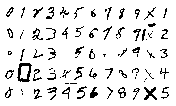 0 1 2 3 4 5 6 7 8 9 x 1
0 1 2 3 4 5 6 7 8 x 2
0 1 2 3 5 6 8 9 x 3
0 2 3 4 5 6 7 8 9 x 4
0 1 2 3 4 5 6 7 8 9 X 5